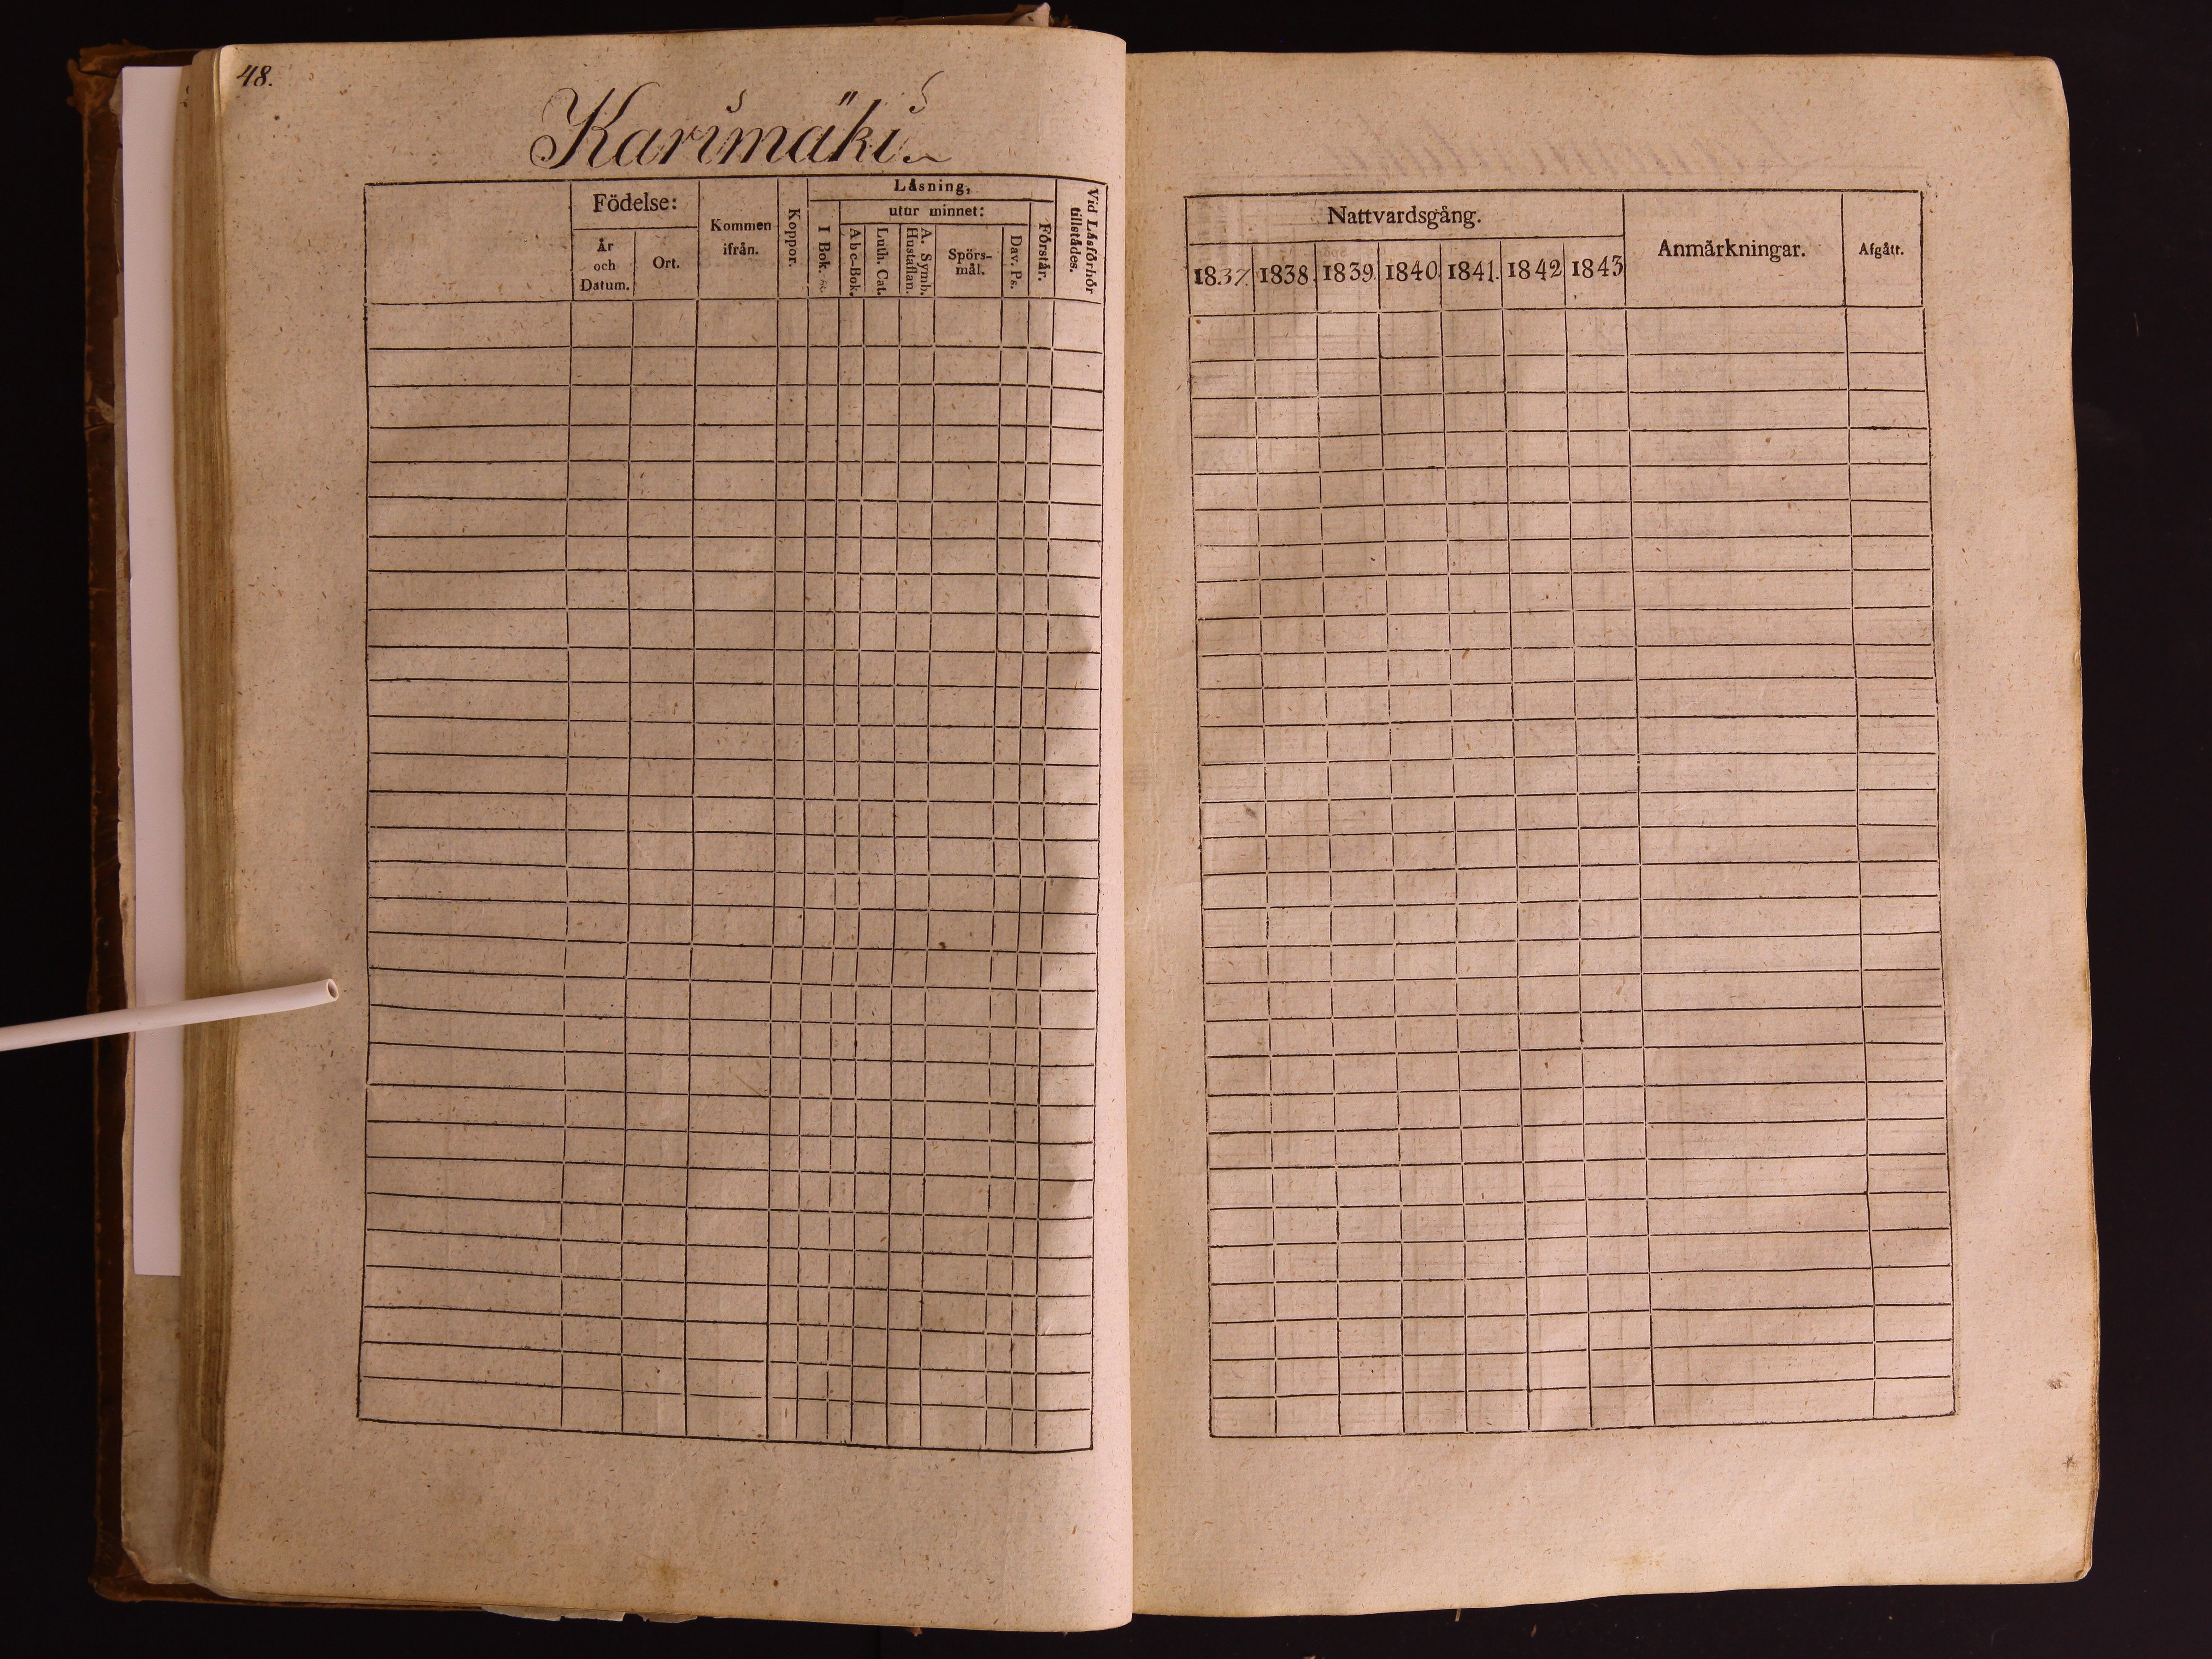 48.
Karimäki.
Födelse:
År
och
Datum.
Ort.
Kommen
ifrån.
Koppor.
Låsning,
I Bok.
utur minnet:
Abc-Bok.
Luth. Cat.
A. Symb.
Hustaflan.
Spörs-
mål.
Dav. Ps.
Förstår.
Vid Låsförhör
tillstådes.
Nattvardsgång.
1837. 1838. 1839. 1840. 1841. 1842 1843
Anmårkningar.
Afgått.